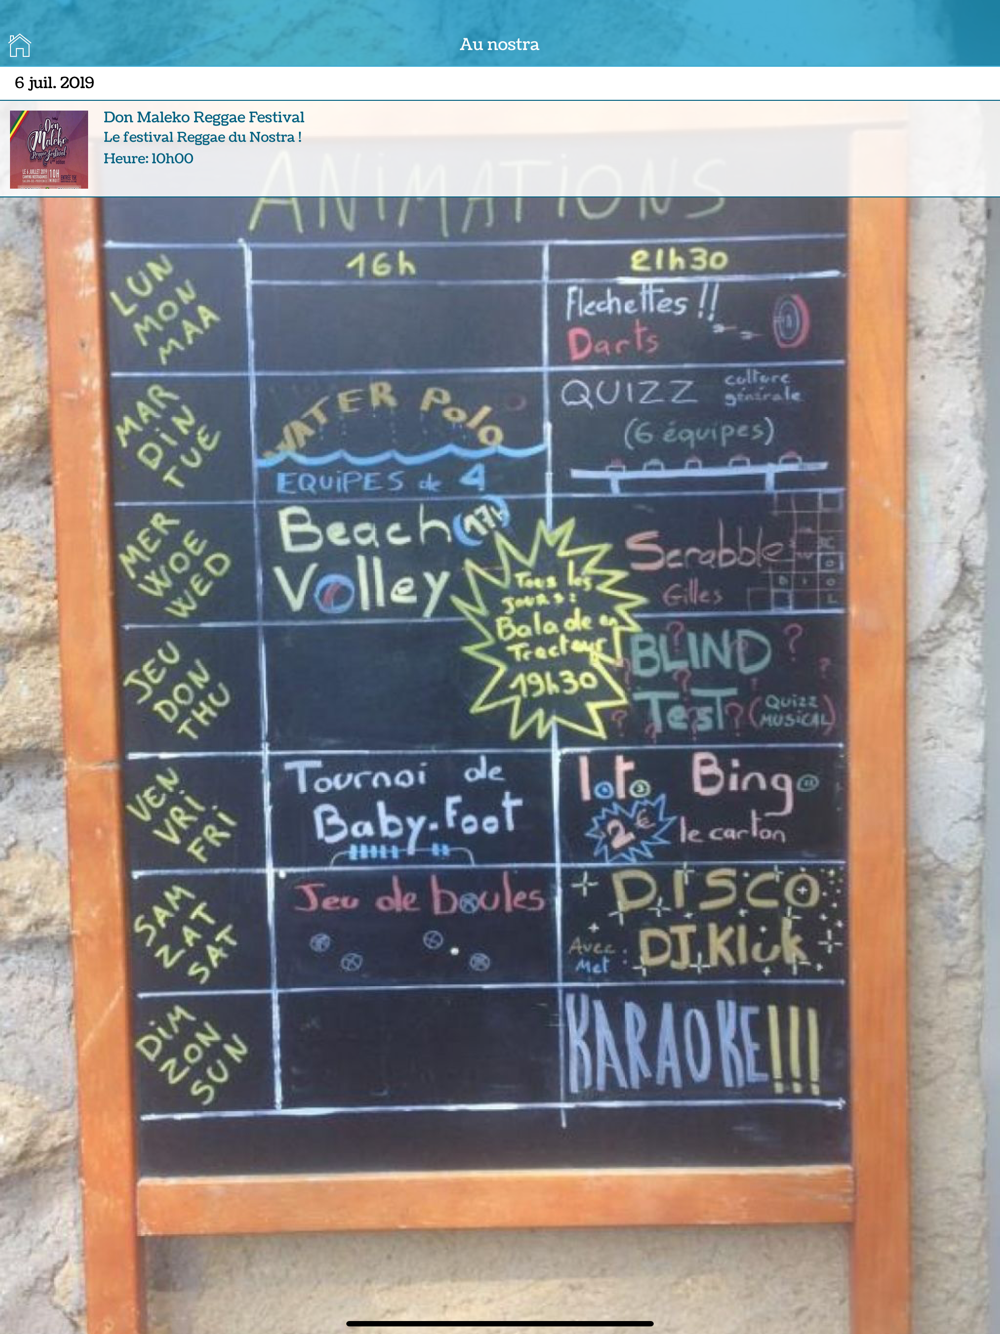 Au nostra
6 juil. 2019
Don Maleko Reggae Festival
Le festival Reggae du Nostra !
Heure: 10h00
Don
Maleko
ANIMATIONS
16h 21h30
LUN
MON
MAA
Flechettes !!
Darts
MAR
DIN
TUE
WATER Polo
EQUIPES de 4
QUIZZ culture
générale
(6 équipes)
MER
WOE
WED
Beach (17h)
Volley
Scrabble
Gilles
Tous les
jours :
Balade en
Tracteur
19h30
JEU
DON
THU
BLIND ?
Test ? (Quizz
MUSICAL)
VEN
VRI
FRI
Tournoi de
Baby-Foot
loto Bingo
2€ le carton
SAM
ZAT
SAT
Jeu de boules
DISCO
Avec :
Met DJ.Kluk
DIM
ZON
SUN
KARAOKE!!!